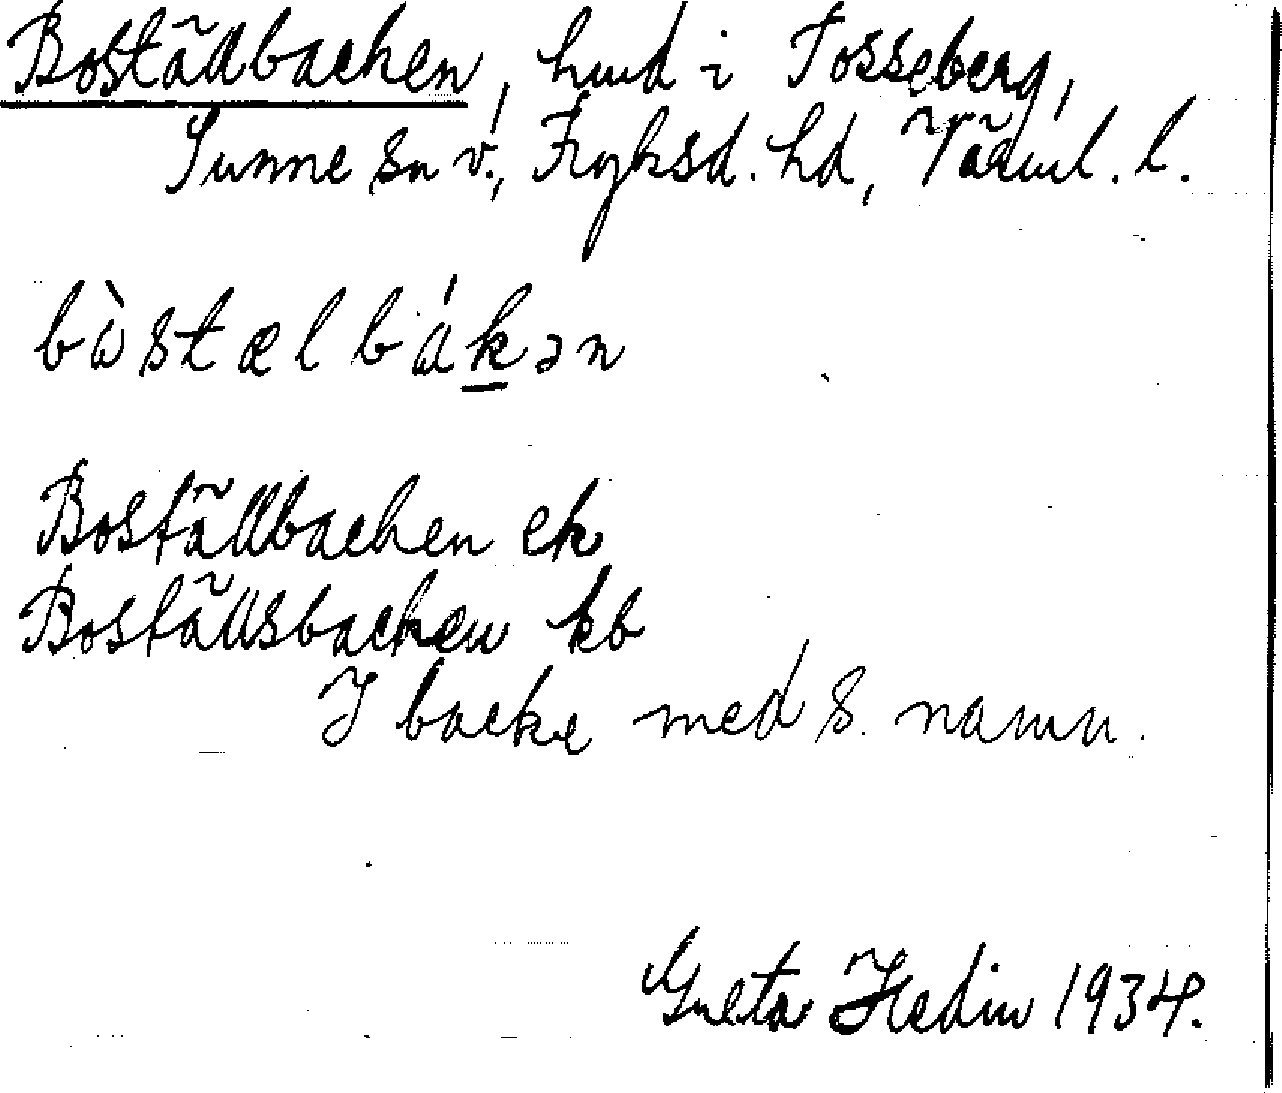 Boställbacken, hmd i Tosseberg,
Sunne sn v., Fryksd. hd, Värml. l.
bòstælbákən
Boställbacken ek
Boställsbacken kb
I backe med s. namn.
Greta Hedin 1934.